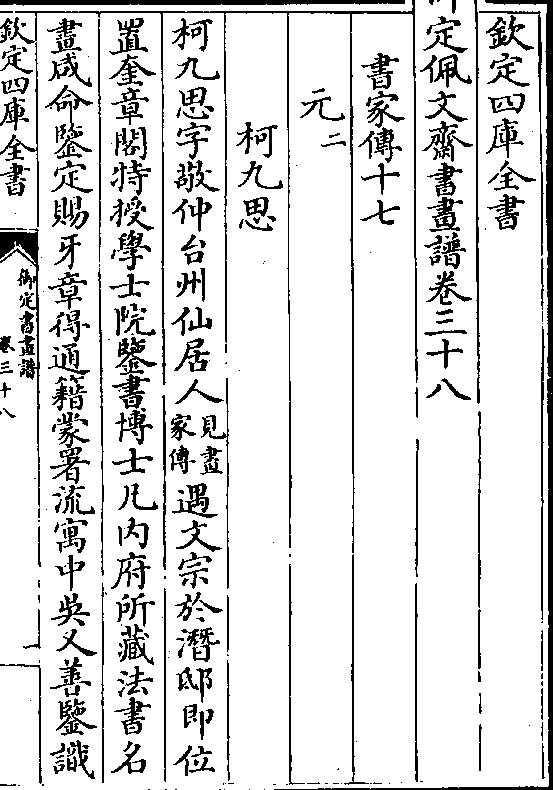 欽定四庫全書
御定佩文齋書畫譜卷三十八
書家傳十七
元二
柯九思
柯九思字敬仲台州仙居人見畫家傳遇文宗於潛邸即位
置奎章閣特授學士院鑒書博士凡内府所藏法書名
畫咸命鑒定賜牙章得通籍蒙署流寓中吳又善鑒識
欽定四庫全書
御定書畫譜
卷三十八
一